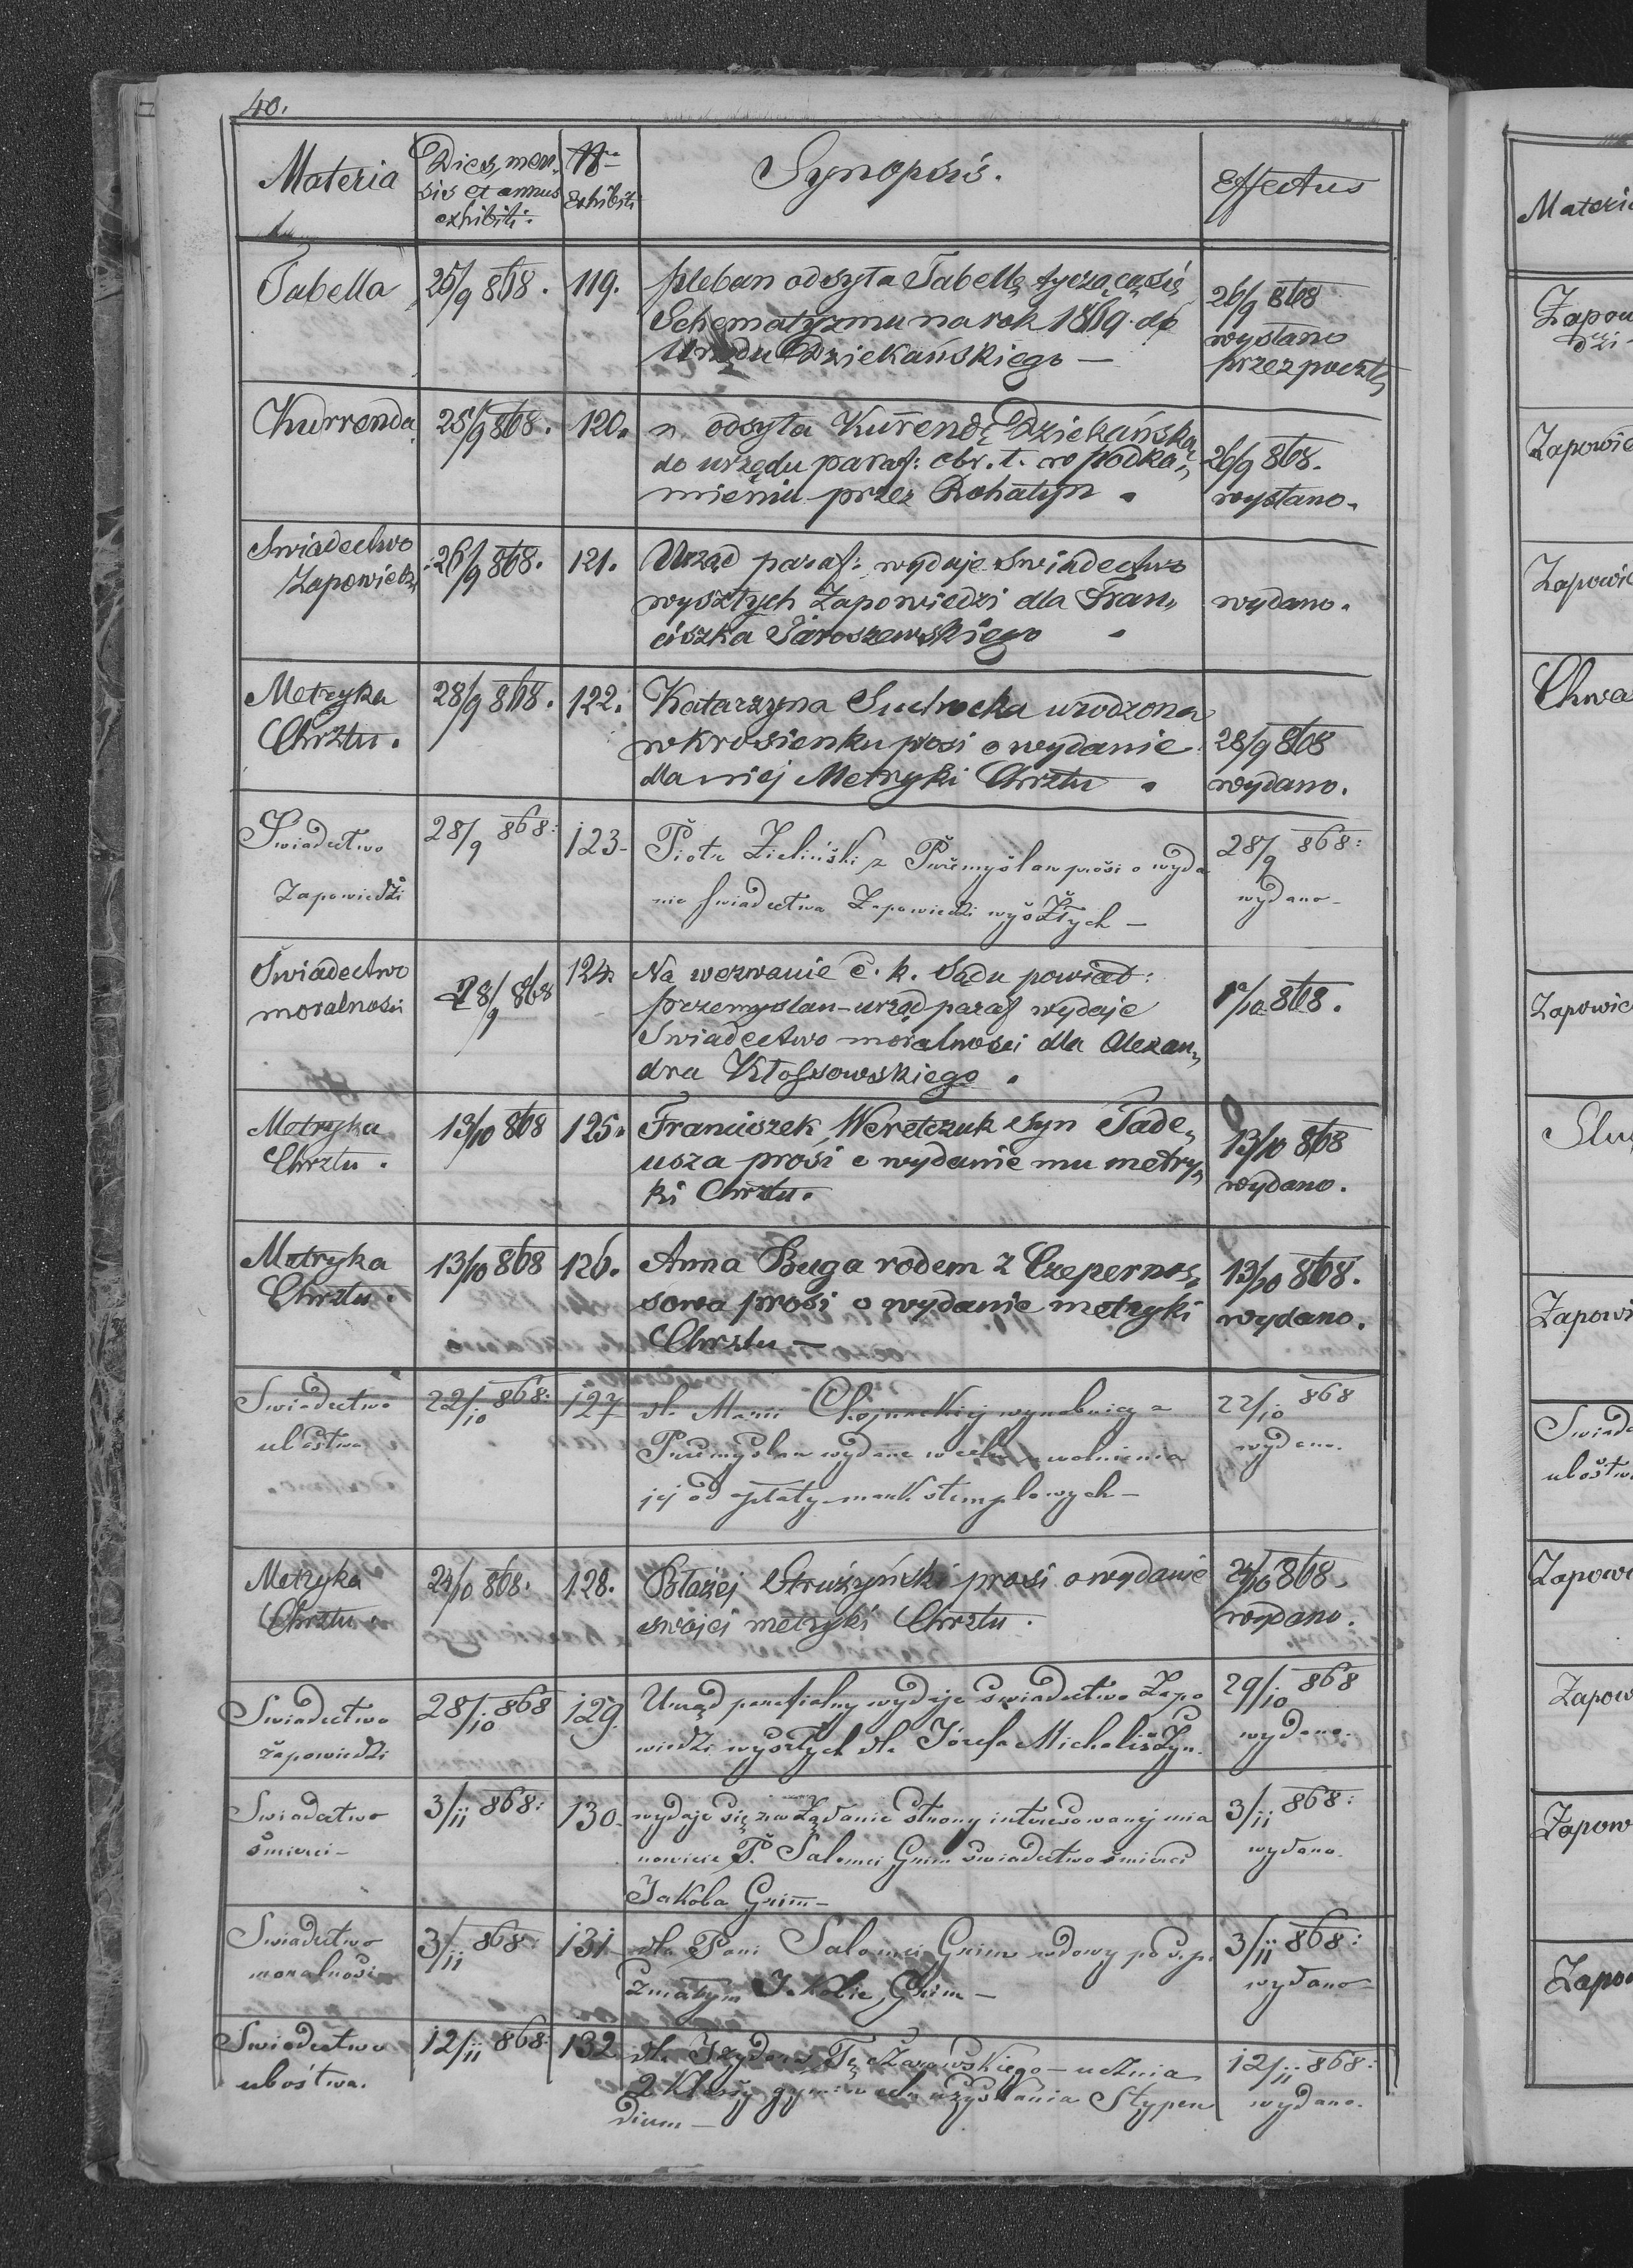 40.
Materia
Dies, men-
sis et annus
exhibiti.
Nr
Exhibiti
Synopsis.
Effectus
Tabella
25/9 868.
119.
pleban odsyła Tabellę tyczącą się
Schematyzmu na rok 1869. do
Urzędu Dziekańskiego —
26/9 868
wysłano
przez pocztę
Kurrenda
25/9 868.
120.
" odsyła Kurendę Dziekańską
do urzędu paraf: obr. ł. w podka„
mieniu przez Rohatyn.
26/9 868.
wysłano.
Swiadectwo
Zapowiedzi
26/9 868.
121.
Urząd paraf: wydaje Swiadectwo
wyszłych Zapowiedzi dla Fran„
ciszka Jaroszewskiego
wydano.
Metryka
Chrztu.
28/9 868.
122.
Katarzyna Suchocka urodzona
w krosienku prosi o wydanie
dla niej Metryki Chrztu.
28/9 868
wydano.
Swiadectwo
Zapowiedzi
28/9 868:
123-
Piotr Zieliński z Przemyślan prosi o wyda
nie Swiadectwa Zapowiedzi wyszłych —
28/9 868:
wydano-
Świadectwo
moralnosci
28/9 868
124.
Na wezwanie c. k. Sądu powiat:
przemyslan - urząd paraf wydaje
Swiadectwo moralnosci dla Alexan„
dra Kłossowskiego.
1/10 868.
Metryka
Chrztu.
13/10 868
125.
Franciszek Weretczuk syn Tade„
usza prosi o wydanie mu metry„
ki Chrztu.
13/10 868
wydano.
Metryka
Chrztu.
13/10 868
126.
Anna Buga rodem z Czepernos„
sowa prosi o wydanie metryki
Chrztu —
13/10 868.
wydano.
Swiadectwo
ubóstwa
22/10 868:
127
dla Maryi Chojnackiej wyrobnicy z
Przemyślan wydane w celu uwolnienia
jej od opłaty mark stemplowych —
22/10 868
wydano.
Metryka
Chrztu.
24/10 868.
128.
Błażej Strużyński prosi o wydanie
swojej metryki Chrztu.
24/10 868.
wydano.
Swiadectwo
zapowiedzi
28/10 868
129.
Urząd parafialny wydaje świadectwo Zapo
wiedzi wyszłych dla Józefa Michaliszyn.
29/10 868
wydano.
Swiadectwo
śmierci-
3/11 868:
130.
wydaje się na żądanie strony interesowanej mia
nowicie P. Salomei Grim świadectwo śmierci
Jakoba Grim —
3/11 868:
wydano.
Swiadectwo
moralności
3/11 868:
131.
dla Pani Salomei Grim wdowy po ś.p.
zmarłym Jakobie Grim —
3/11 868:
wydano-
Swiadectwo
ubóstwa.
12/11 868:
132
dla Izydora Tęczarowskiego — ucznia
2 klassy gym: w celu uzyskania Stypen
dium —
12/11 868:
wydano.
Zapowie
Zapowi
Zapowie
Zapowi
ubóstw
Zapowi
Zapow
Zapow